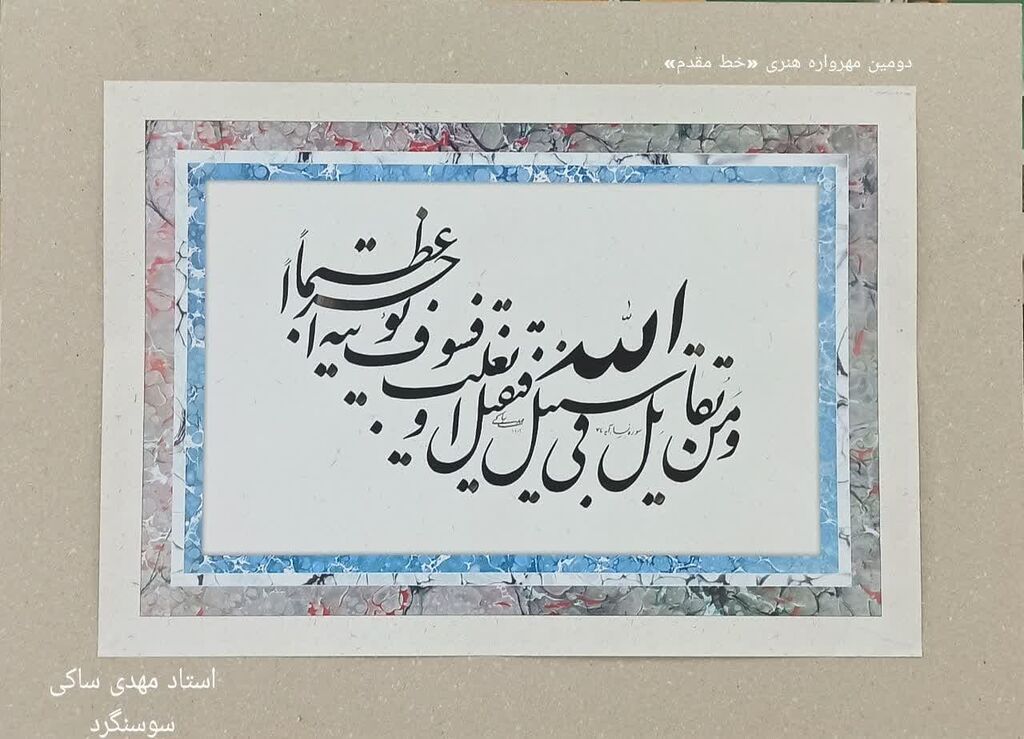 دومین مهرواره هنری «خط مقدم»
ومن یقاتل فی سبیل الله فیقتل او یغلب فسوف نوتیه اجراً عظیماً
استاد مهدی ساکی
سوسنگرد